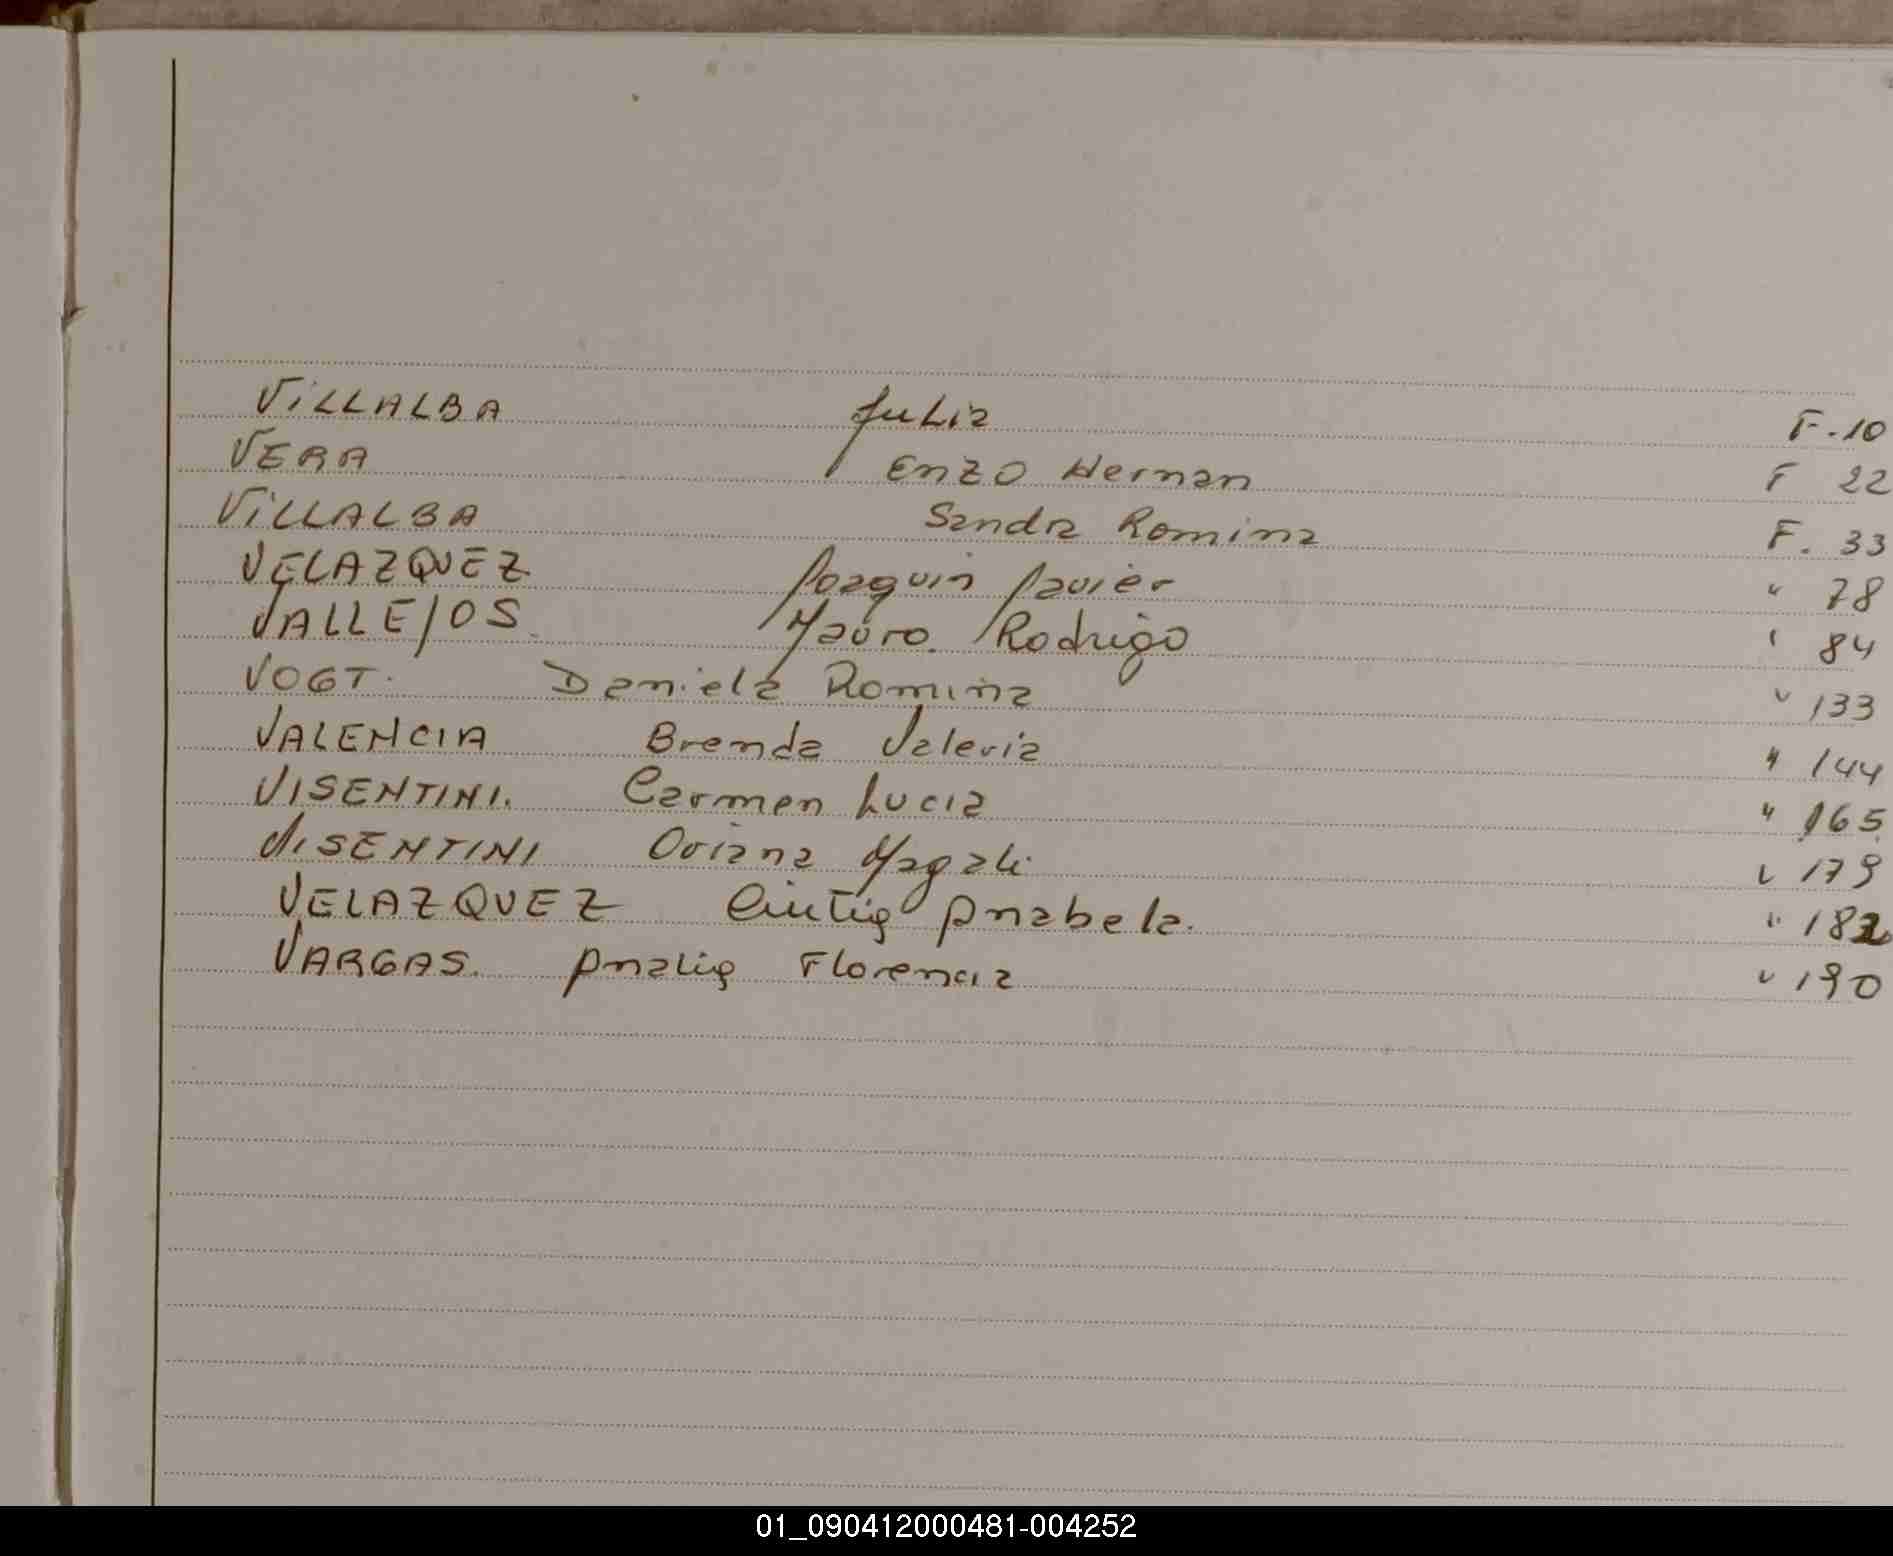 ViLLALBA Julia F-10
VERA Enzo Hernan F 22
ViLLALBA Sandra Romina F. 33
VELAZQUEZ Joaquin Javier " 78
VALLEJOS. Mauro. Rodrigo " 84
VOGT. Daniela Romina " 133
VALENCIA Brenda Valeria " 144
VISENTINI. Carmen Lucia " 165
ViSENTINI Oriana Magali " 179
VELAZQUEZ Cintia Anabela. " 182
VARGAS. Analia Florencia " 190
01_090412000481-004252